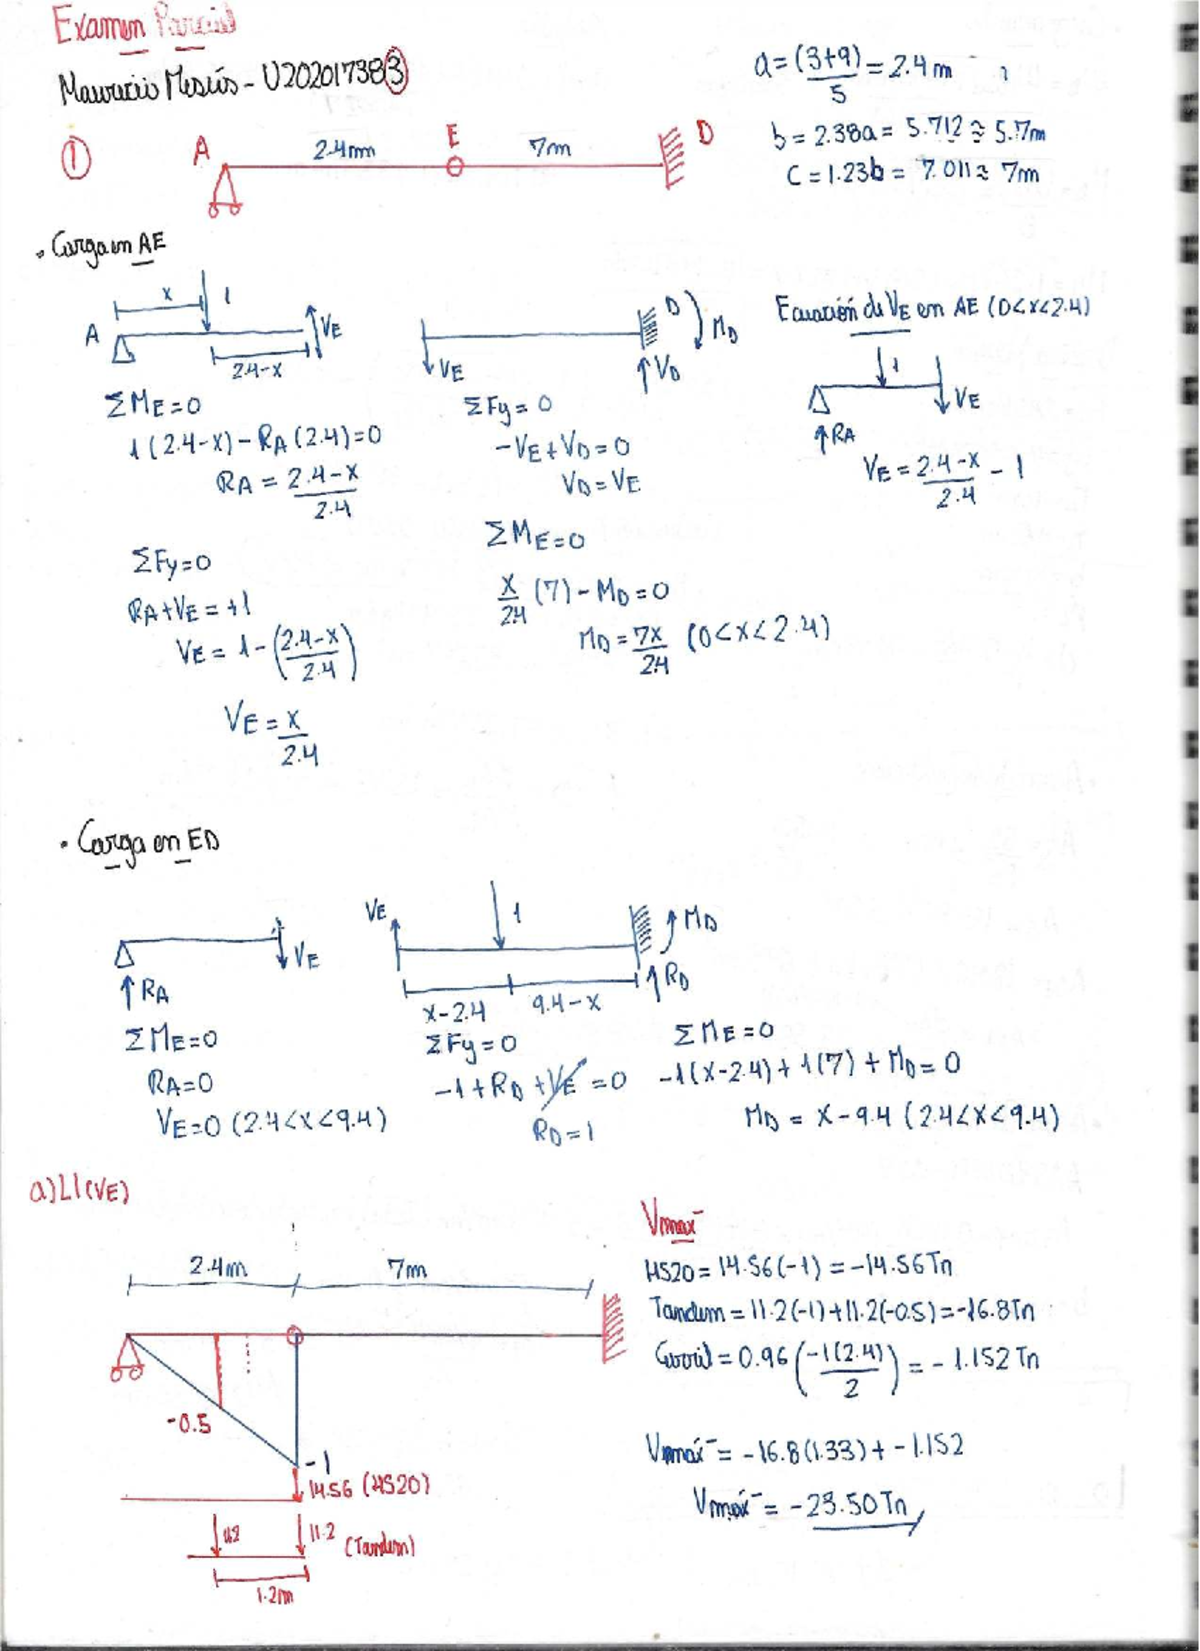 Examen Parcial
Mauricio Mesías - U202017383
a = (3+9)/5 = 2.4 m
b = 2.38a = 5.712 ≅ 5.7m
c = 1.23b = 7.011 ≅ 7m
① A 2.4m E 7m D
• Carga en AE
x 1
A VE
2.4-x
VE D VD MD
Ecuación de VE en AE (0<x<2.4)
1 VE
RA
VE = (2.4-x)/2.4 - 1
ΣME=0
1(2.4-x) - RA(2.4)=0
RA = (2.4-x)/2.4
ΣFy=0
RA+VE=+1
VE = 1-((2.4-x)/2.4)
VE = x/2.4
ΣFy=0
-VE+VD=0
VD=VE
ΣME=0
x/2.4 (7) - MD=0
MD = 7x/2.4 (0<x<2.4)
• Carga en ED
VE
RA
VE 1 MD
RD
x-2.4 9.4-x
ΣME=0
RA=0
VE=0 (2.4<x<9.4)
ΣFy=0
-1+RD+VE=0
RD=1
ΣME=0
-1(x-2.4)+1(7)+MD=0
MD = x-9.4 (2.4<x<9.4)
a) LI(VE)
2.4m 7m
-0.5
-1
14.56 (HS20)
11.2 11.2 (Tandem)
1.2m
Vmax-
HS20 = 14.56(-1) = -14.56 Tn
Tandem = 11.2(-1)+11.2(-0.5)=-16.8Tn
Carril = 0.96 (-1(2.4)/2) = -1.152 Tn
Vmáx- = -16.8(1.33) + -1.152
Vmáx- = -23.50 Tn